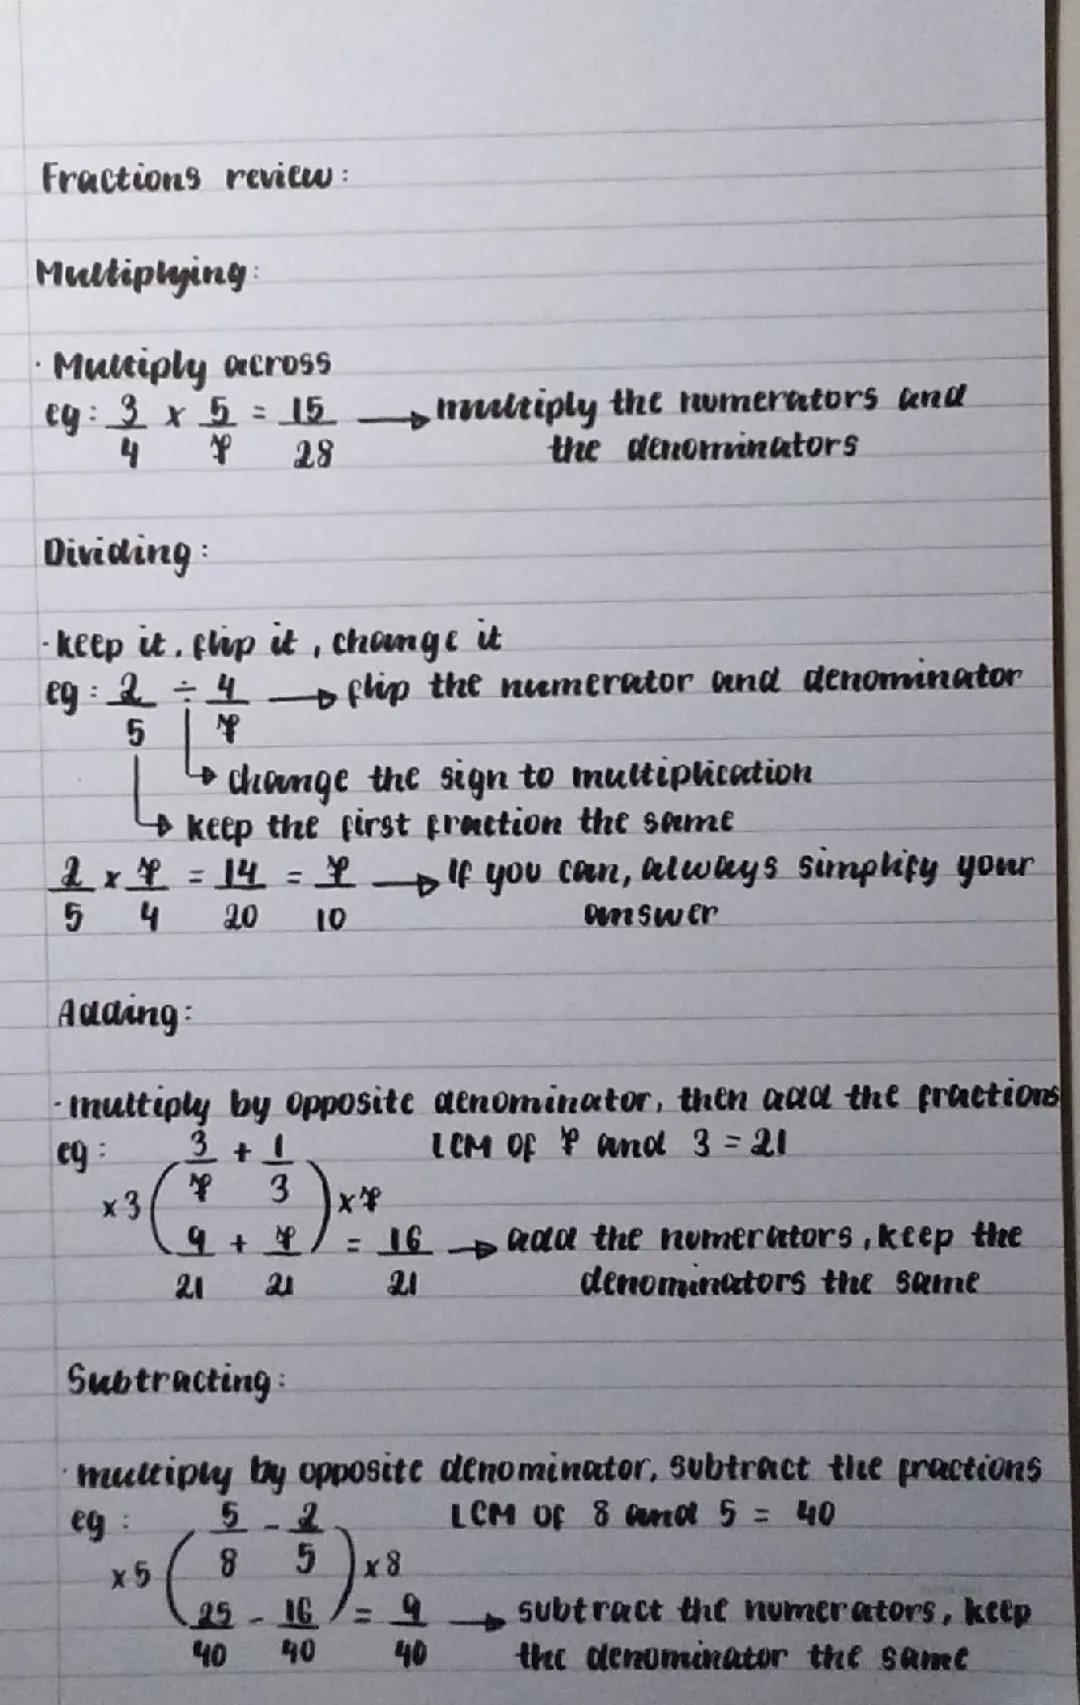 Fractions review:
Multiplying:
· Multiply across
eg: 3/4 x 5/7 = 15/28 → multiply the numerators and
the denominators
Dividing:
· keep it, flip it, change it
eg: 2/5 ÷ 4/7 → flip the numerator and denominator
→ change the sign to multiplication
→ keep the first fraction the same
2/5 x 7/4 = 14/20 = 7/10 → If you can, always simplify your
answer
Adding:
· multiply by opposite denominator, then add the fractions
eg: 3/7 + 1/3 LCM of 7 and 3 = 21
x3 ( ) x7
9/21 + 7/21 = 16/21 → add the numerators, keep the
denominators the same
Subtracting:
· multiply by opposite denominator, subtract the fractions
eg: 5/8 - 2/5 LCM of 8 and 5 = 40
x5 ( ) x8
25/40 - 16/40 = 9/40 → subtract the numerators, keep
the denominator the same